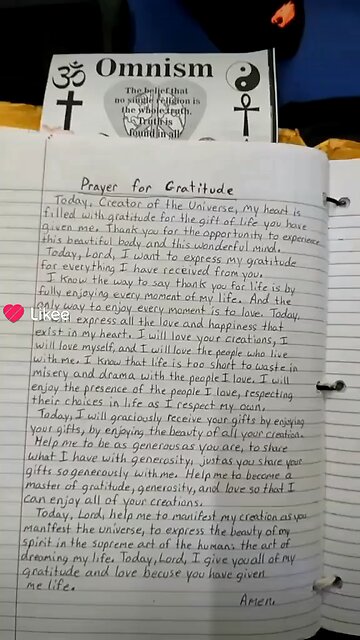 Omnism
The belief that
no single religion is
the whole truth.
Truth is
found in all
Prayer for Gratitude
Today, Creator of the Universe, my heart is
filled with gratitude for the gift of life you have
given me. Thank you for the opportunity to experience
this beautiful body and this wonderful mind.
Today, Lord, I want to express my gratitude
for everything I have received from you.
I know the way to say thank you for life is by
fully enjoying every moment of my life. And the
only way to enjoy every moment is to love. Today,
I will express all the love and happiness that
exist in my heart. I will love your creations, I
will love myself, and I will love the people who live
with me. I know that life is too short to waste in
misery and drama with the people I love. I will
enjoy the presence of the people I love, respecting
their choices in life as I respect my own.
Today, I will graciously receive your gifts by enjoying
your gifts, by enjoying the beauty of all your creation.
Help me to be as generous as you are, to share
what I have with generosity, just as you share your
gifts so generously with me. Help me to become a
master of gratitude, generosity, and love so that I
can enjoy all of your creations.
Today, Lord, help me to manifest my creation as you
manifest the universe, to express the beauty of my
spirit in the supreme art of the human: the art of
dreaming my life. Today, Lord, I give you all of my
gratitude and love becuse you have given
me life.
Amen.
Likee